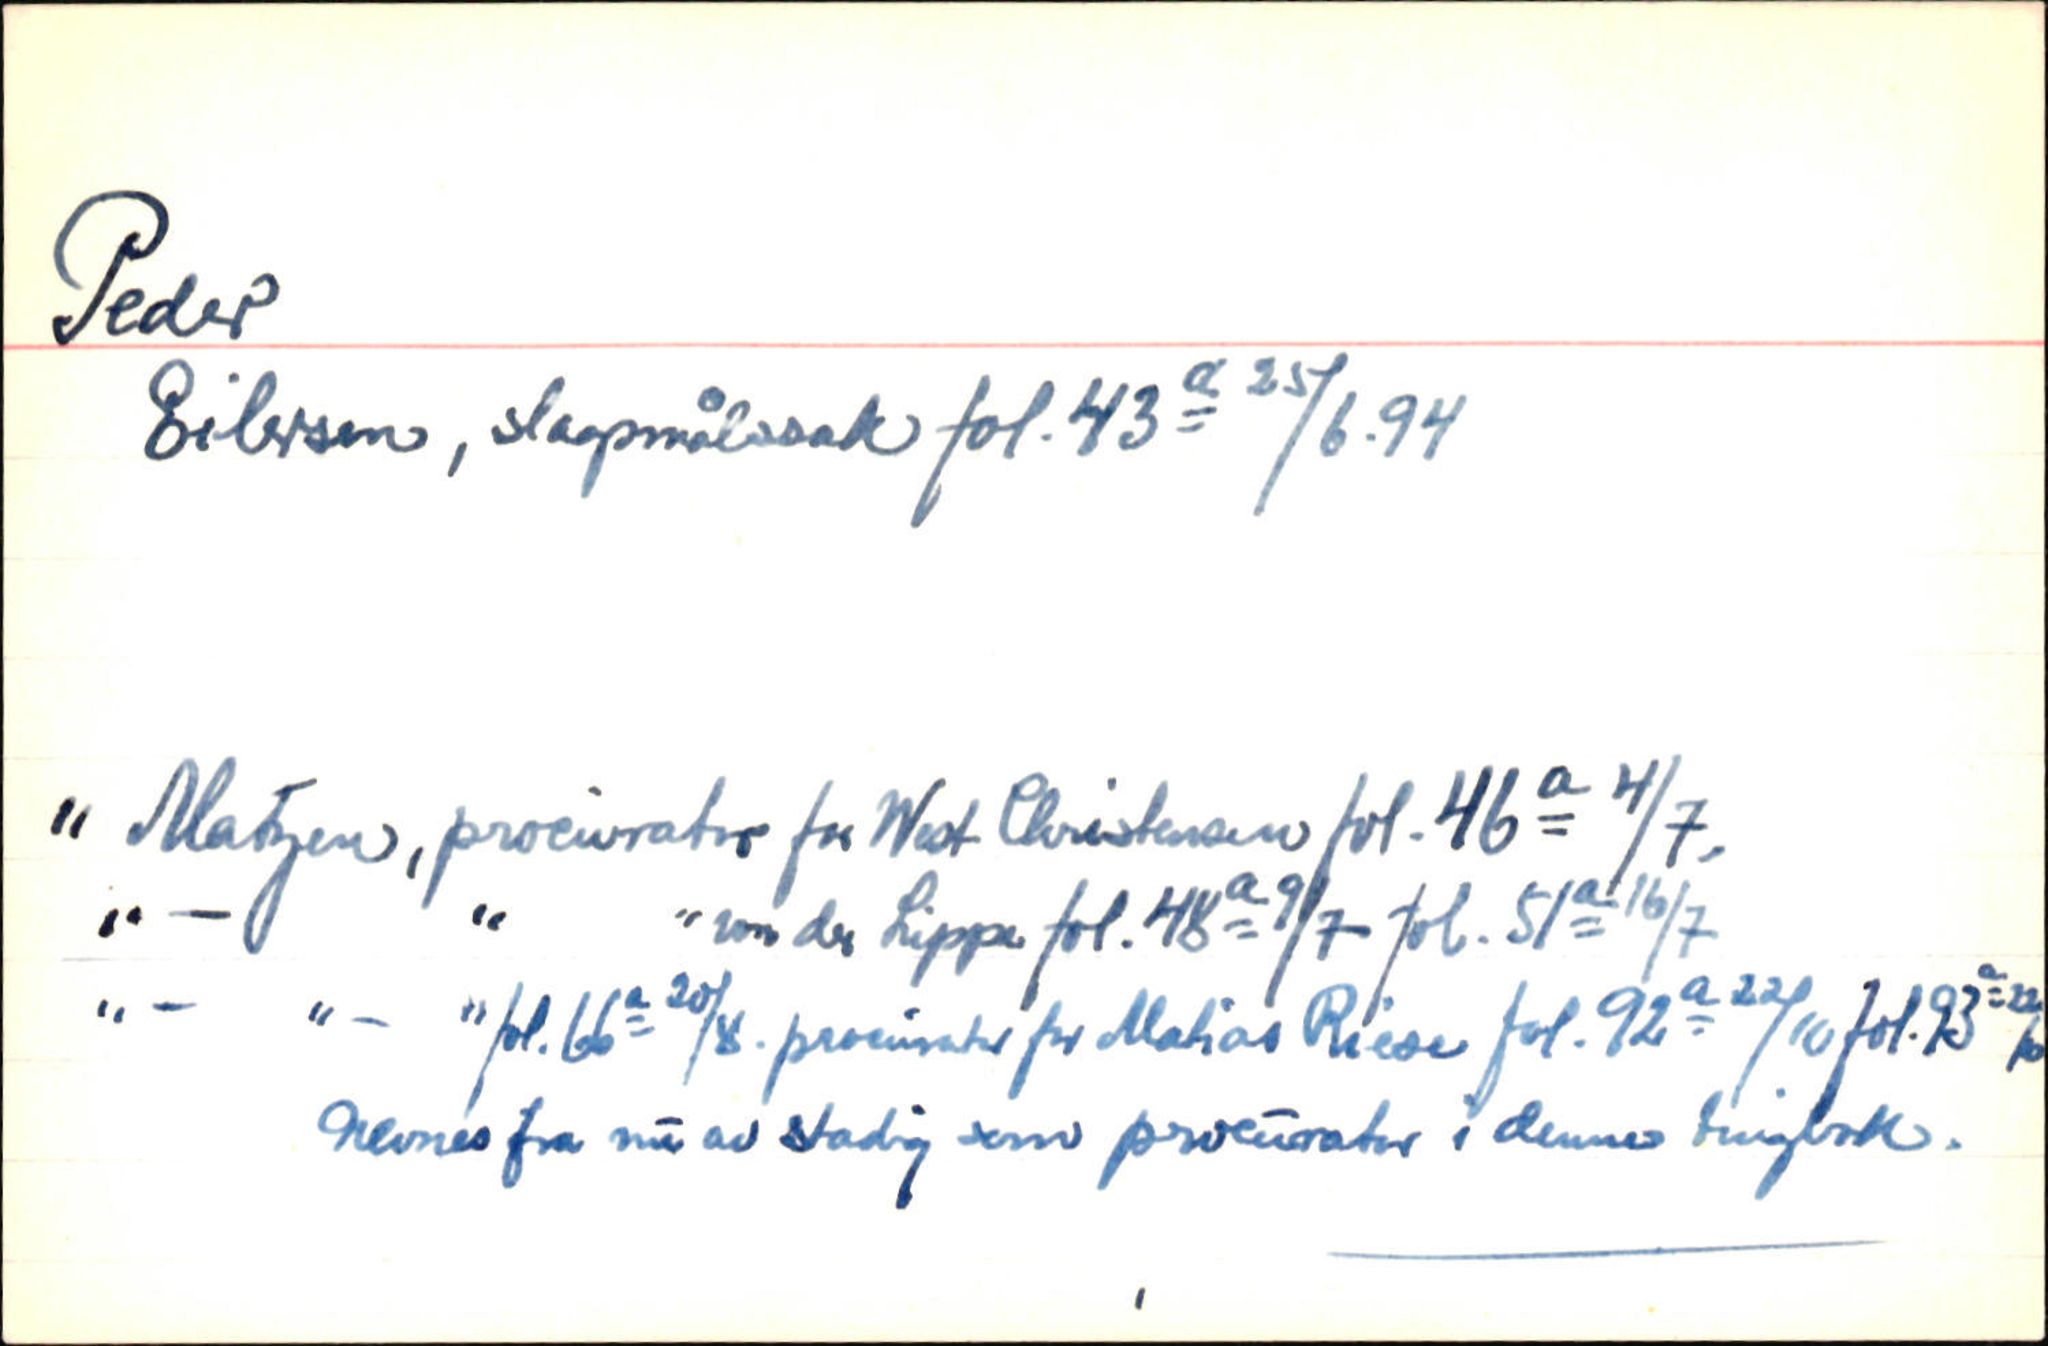 Peder
Eilersen, slagsmålssak fol. 43a 25/6.94
" Matzen, procurator for West Christensen fol. 46a 4/7,
" — " " von der Lippe fol. 48a 9/7 fol. 51a 16/7
" — " — " fol. 66a 20/8. procurator for Matias Riese fol. 92a 22/10 fol. 93a 22/10
nevnes fra nu av stadig som procurator i denne tingbok.